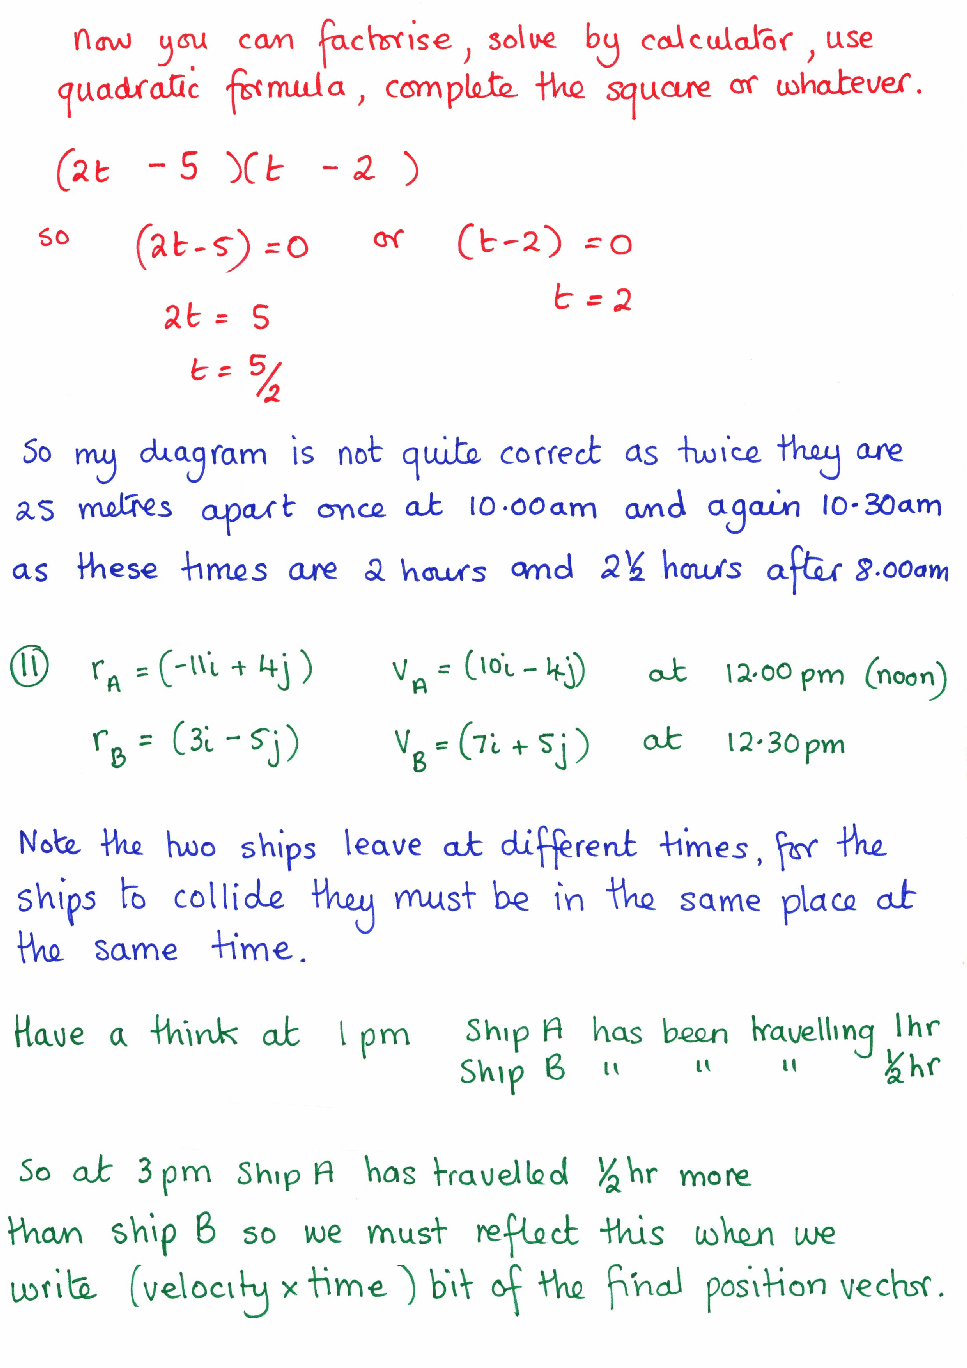 Now you can factorise, solve by calculator, use
quadratic formula, complete the square or whatever.
(2t - 5)(t - 2)
so (2t-5) = 0 or (t-2) = 0
2t = 5 t = 2
t = 5/2
So my diagram is not quite correct as twice they are
25 metres apart once at 10.00am and again 10-30am
as these times are 2 hours and 2½ hours after 8.00am
⑪ r_A = (-11i + 4j) V_A = (10i - 4j) at 12.00 pm (noon)
r_B = (3i - 5j) V_B = (7i + 5j) at 12.30pm
Note the two ships leave at different times, for the
ships to collide they must be in the same place at
the same time.
Have a think at 1 pm Ship A has been travelling 1hr
Ship B " " " ½hr
So at 3pm Ship A has travelled ½hr more
than ship B so we must reflect this when we
write (velocity x time) bit of the final position vector.